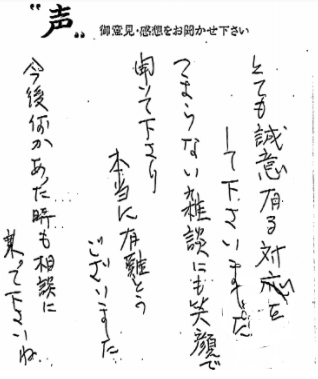 "声" 御意見・感想をお聞かせ下さい
とても誠意有る対応を
して下さいました
つまらない雑談にも笑顔で
聞いて下さり
本当に有難とう
ございました
今後何かあった時も相談に
乗って下さいね